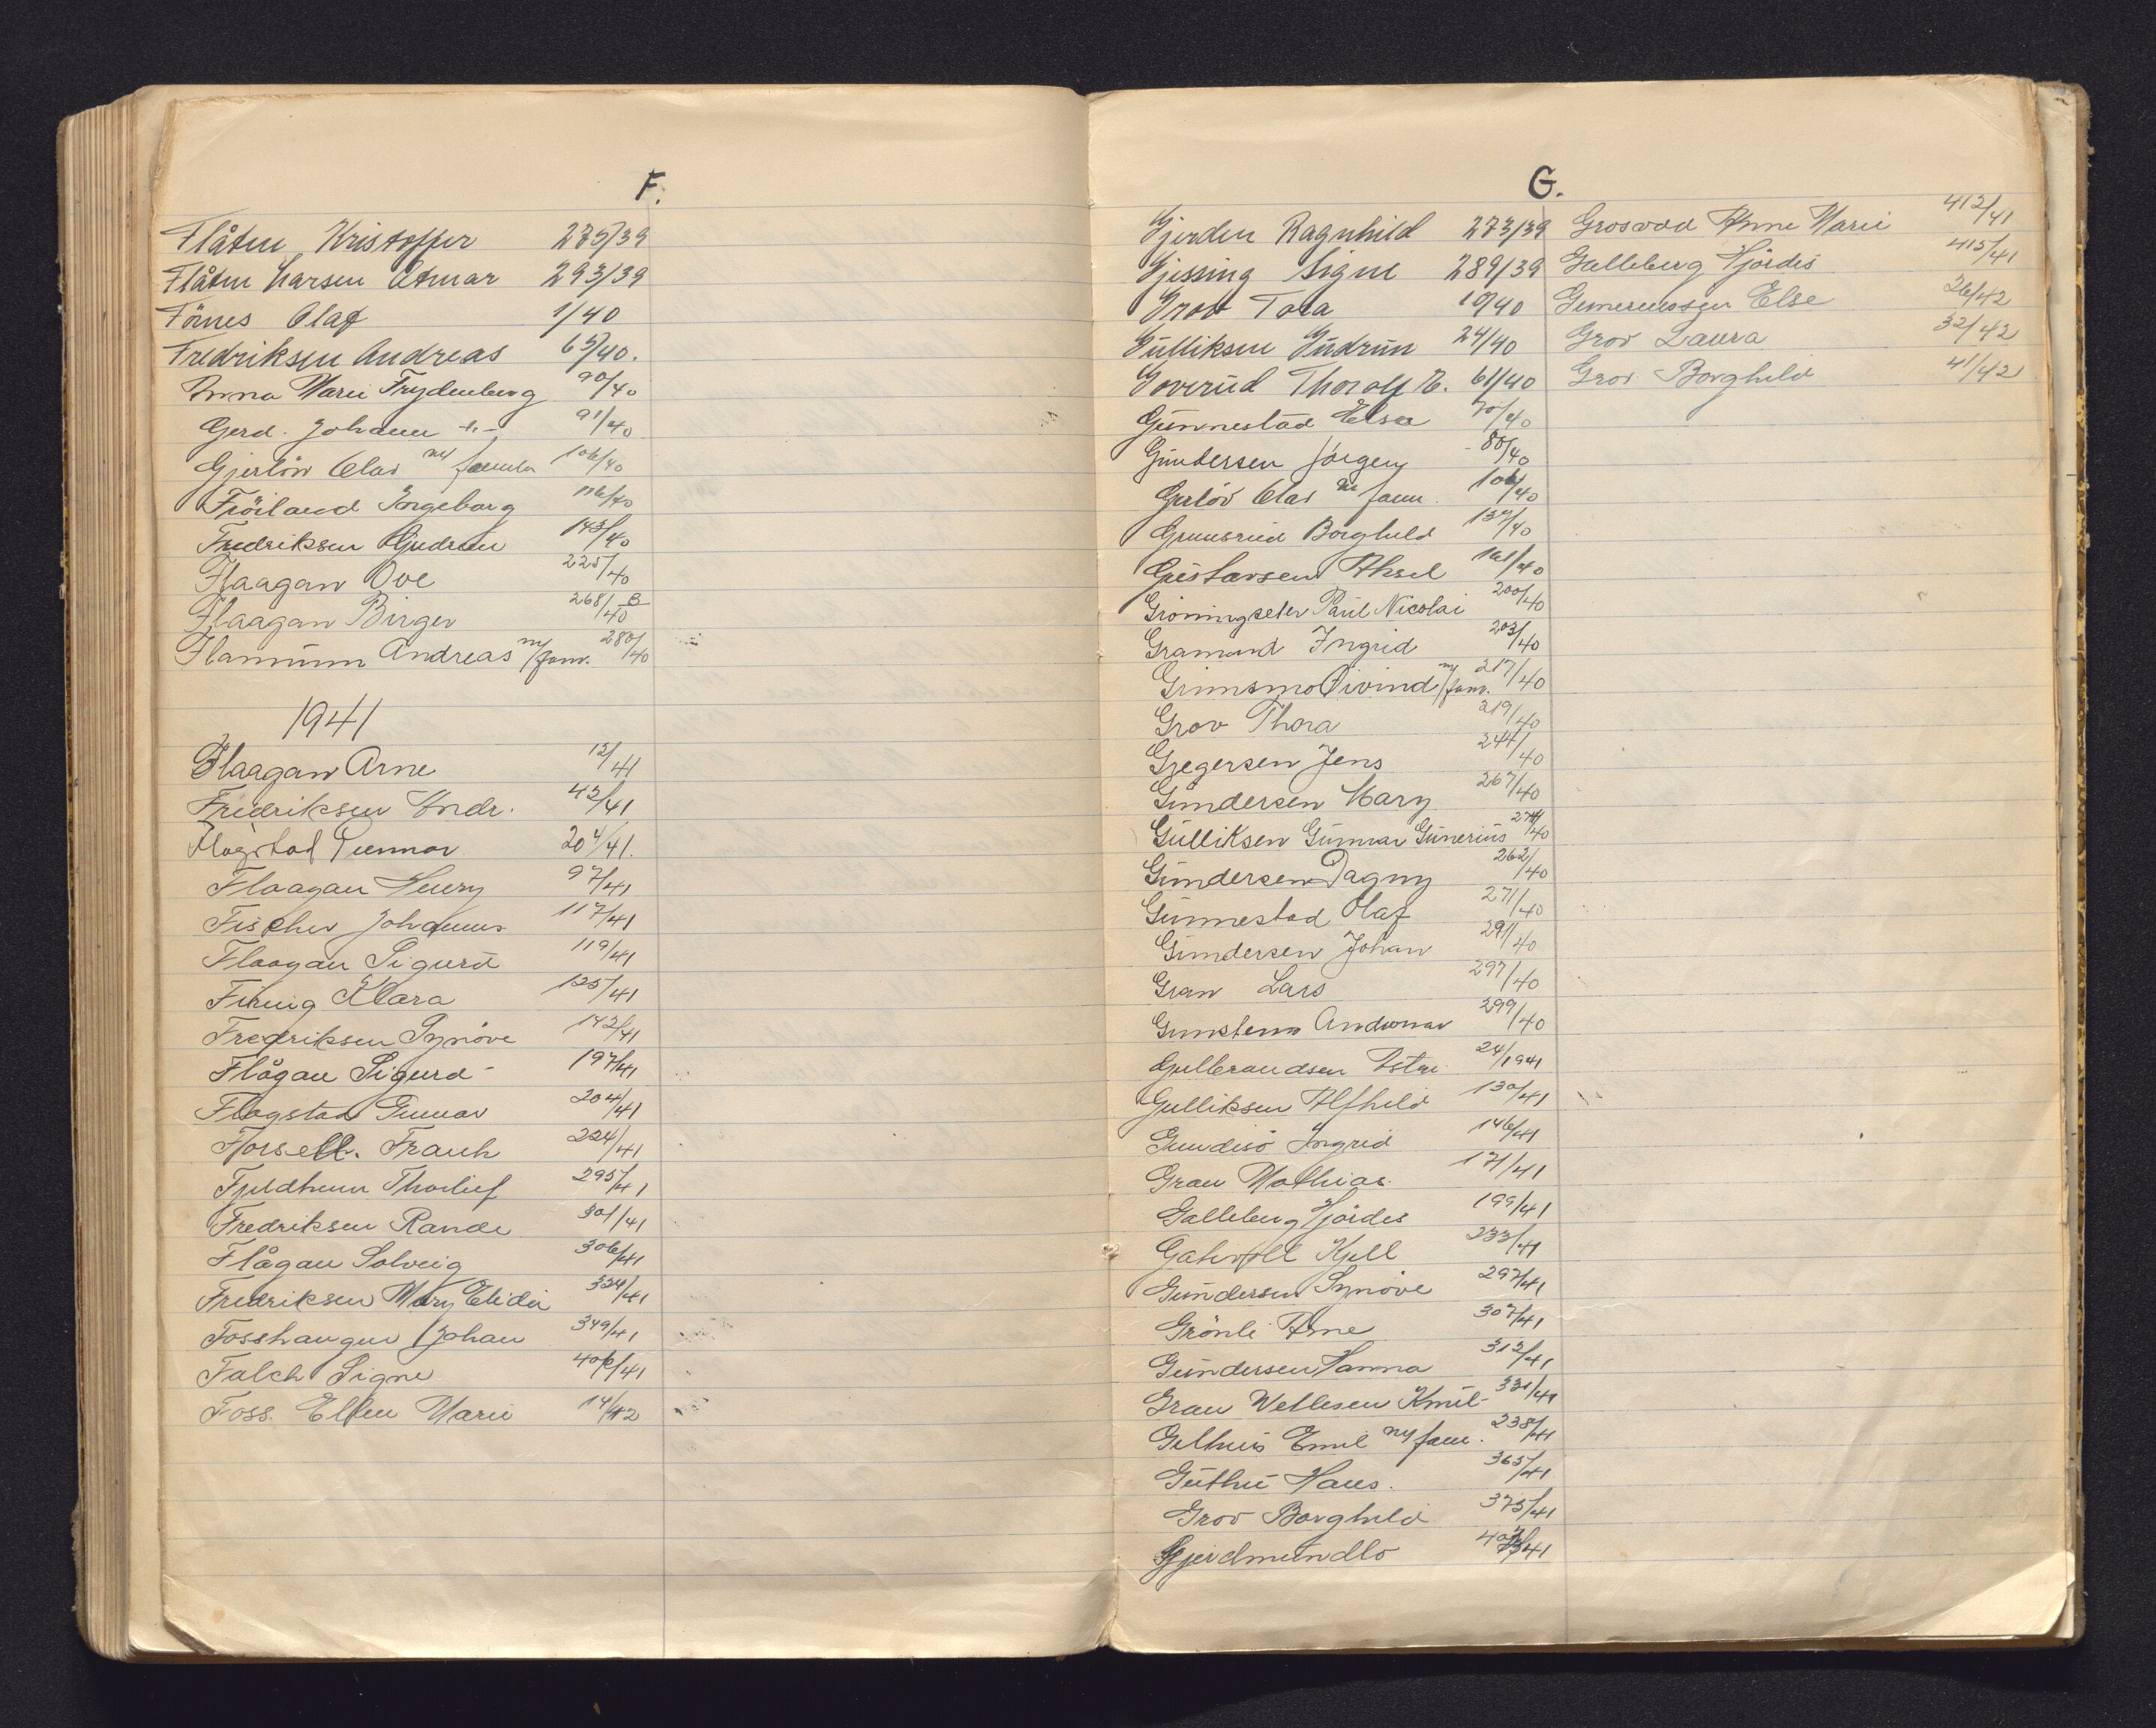 F.
Flåten Kristoffer 275/39
Flåten Larsen Otmar 293/39
Fönes Olaf 1/40
Fredriksen Andreas 65/40.
Anna Marie Frydenberg 90/40
Gerd. Johanne -"- 91/40
Gjerlöv Olav m/ familie 106/40
Fröiland Ingeborg 116/40
Fredriksen Gudrun 143/40
Flaagan Ove 225/40
Flaagan Birger 268/40 B
Flamnum Andreas m/fam. 280/40
1941
Flaagan Arne 12/41
Fredriksen Andr. 42/41
Flagstad Gunnar 204/41.
Flaagan Henry 97/41
Fischer Johannes 117/41
Flaagan Sigurd 119/41
Klara 125/41
Fredriksen Synöve 142/41
Flågan Sigurd 197/41
Flagstad Gunnar 204/41
Forsell. Frank 224/41
Fjeldheim Thorlief 295/41
Fredriksen Randi 301/41
Flågan Solveig 306/41
Fredriksen Mary Elida 324/41
Fosshaugen Johan 349/41
Falch Signe 406/41
Foss. Ellen Marie 14/42
G.
Gjerden Ragnhild 273/39
Gjessing Signe 289/39
Grov Tora 10/40
Gulliksen Gudrun 24/40
Goverud Thorolf E. 61/40
Gunnestad Elsa 70/40
Gundersen Jörgen 80/40
Gjerlöv Olav m fam. 106/40
Gruusrud Borghild 137/40
Gustavsen Aksel 161/40
Gröningseter Paul Nicolai 200/40
Gramund Ingrid 203/40
Grimsmo Öivind m/fam. 217/40
Grov Thora 219/40
Gregersen Jens 244/40
Gundersen Mary 267/40
Gulliksen Gunnar Gunerius 274/40
Gundersen Dagny 262/40
Gunnestad Olaf 271/40
Gundersen Johan 291/40
Gran Lars 297/40
Gunstem 299/40
Gulbrandsen Astri 24/1941
Gulliksen Alfhild 130/41
Gundisö Ingrid 146/41
Gran Mathias. 171/41
Galleberg Hjördis 199/41
Gatevoll Kjell 233/41
Gundersen Synöve 297/41
Grönli Arne 307/41
Gundersen Hanna 312/41
Gran Wetlesen Knut 331/41
Gelhus Emil m/ fam. 238/41
Guthu Hans. 365/41
Grov Borghild 375/41
Gjerdmundbo 41
Grosvod Anne Marie 412/41
Galleberg Hjördis 415/41
Else 26/42
Grov Laura 32/42
Grov Borghild 41/42